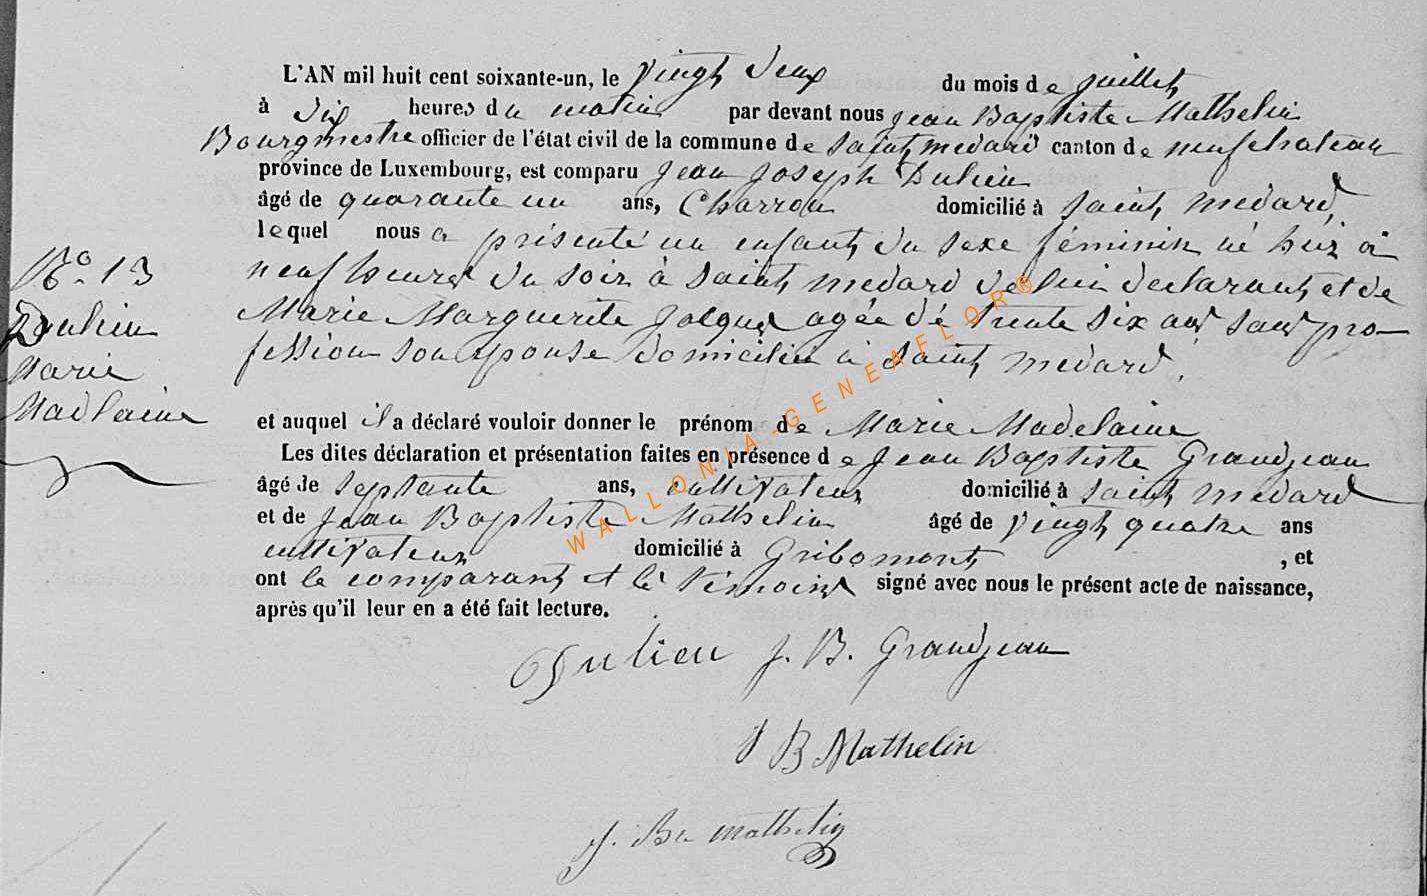 L'AN mil huit cent soixante-un, le Vingt deux du mois de juillet
à dix heures du matin par devant nous jean Baptiste Mathelin
Bourgmestre officier de l'état civil de la commune de Saint medard canton de neufchateau
province de Luxembourg, est comparu jean joseph Dulieu
âgé de quarante un ans, Charron domicilié à Saint medard,
lequel nous a présenté un enfant du sexe féminin né hier à
neuf heures du soir à Saint medard de lui declarant et de
Marie Marguerite jacques agée de trente six ans sans pro-
fession son epouse domiciliée à Saint medard.
N° 13
Dulieu
Marie
Madlaine
et auquel il a déclaré vouloir donner le prénom de Marie Madelaine
Les dites déclaration et présentation faites en présence de jean Baptiste Grandjean
âgé de Septante ans, cultivateur domicilié à Saint medard
et de jean Baptiste Mathelin âgé de vingt quatre ans
cultivateur domicilié à Gribomont , et
ont le comparant et le témoins signé avec nous le présent acte de naissance,
après qu'il leur en a été fait lecture.
Dulieu j. B. Grandjean
J B Mathelin
j. Bte mathelin
WALLONIA-GENEAFLOR®